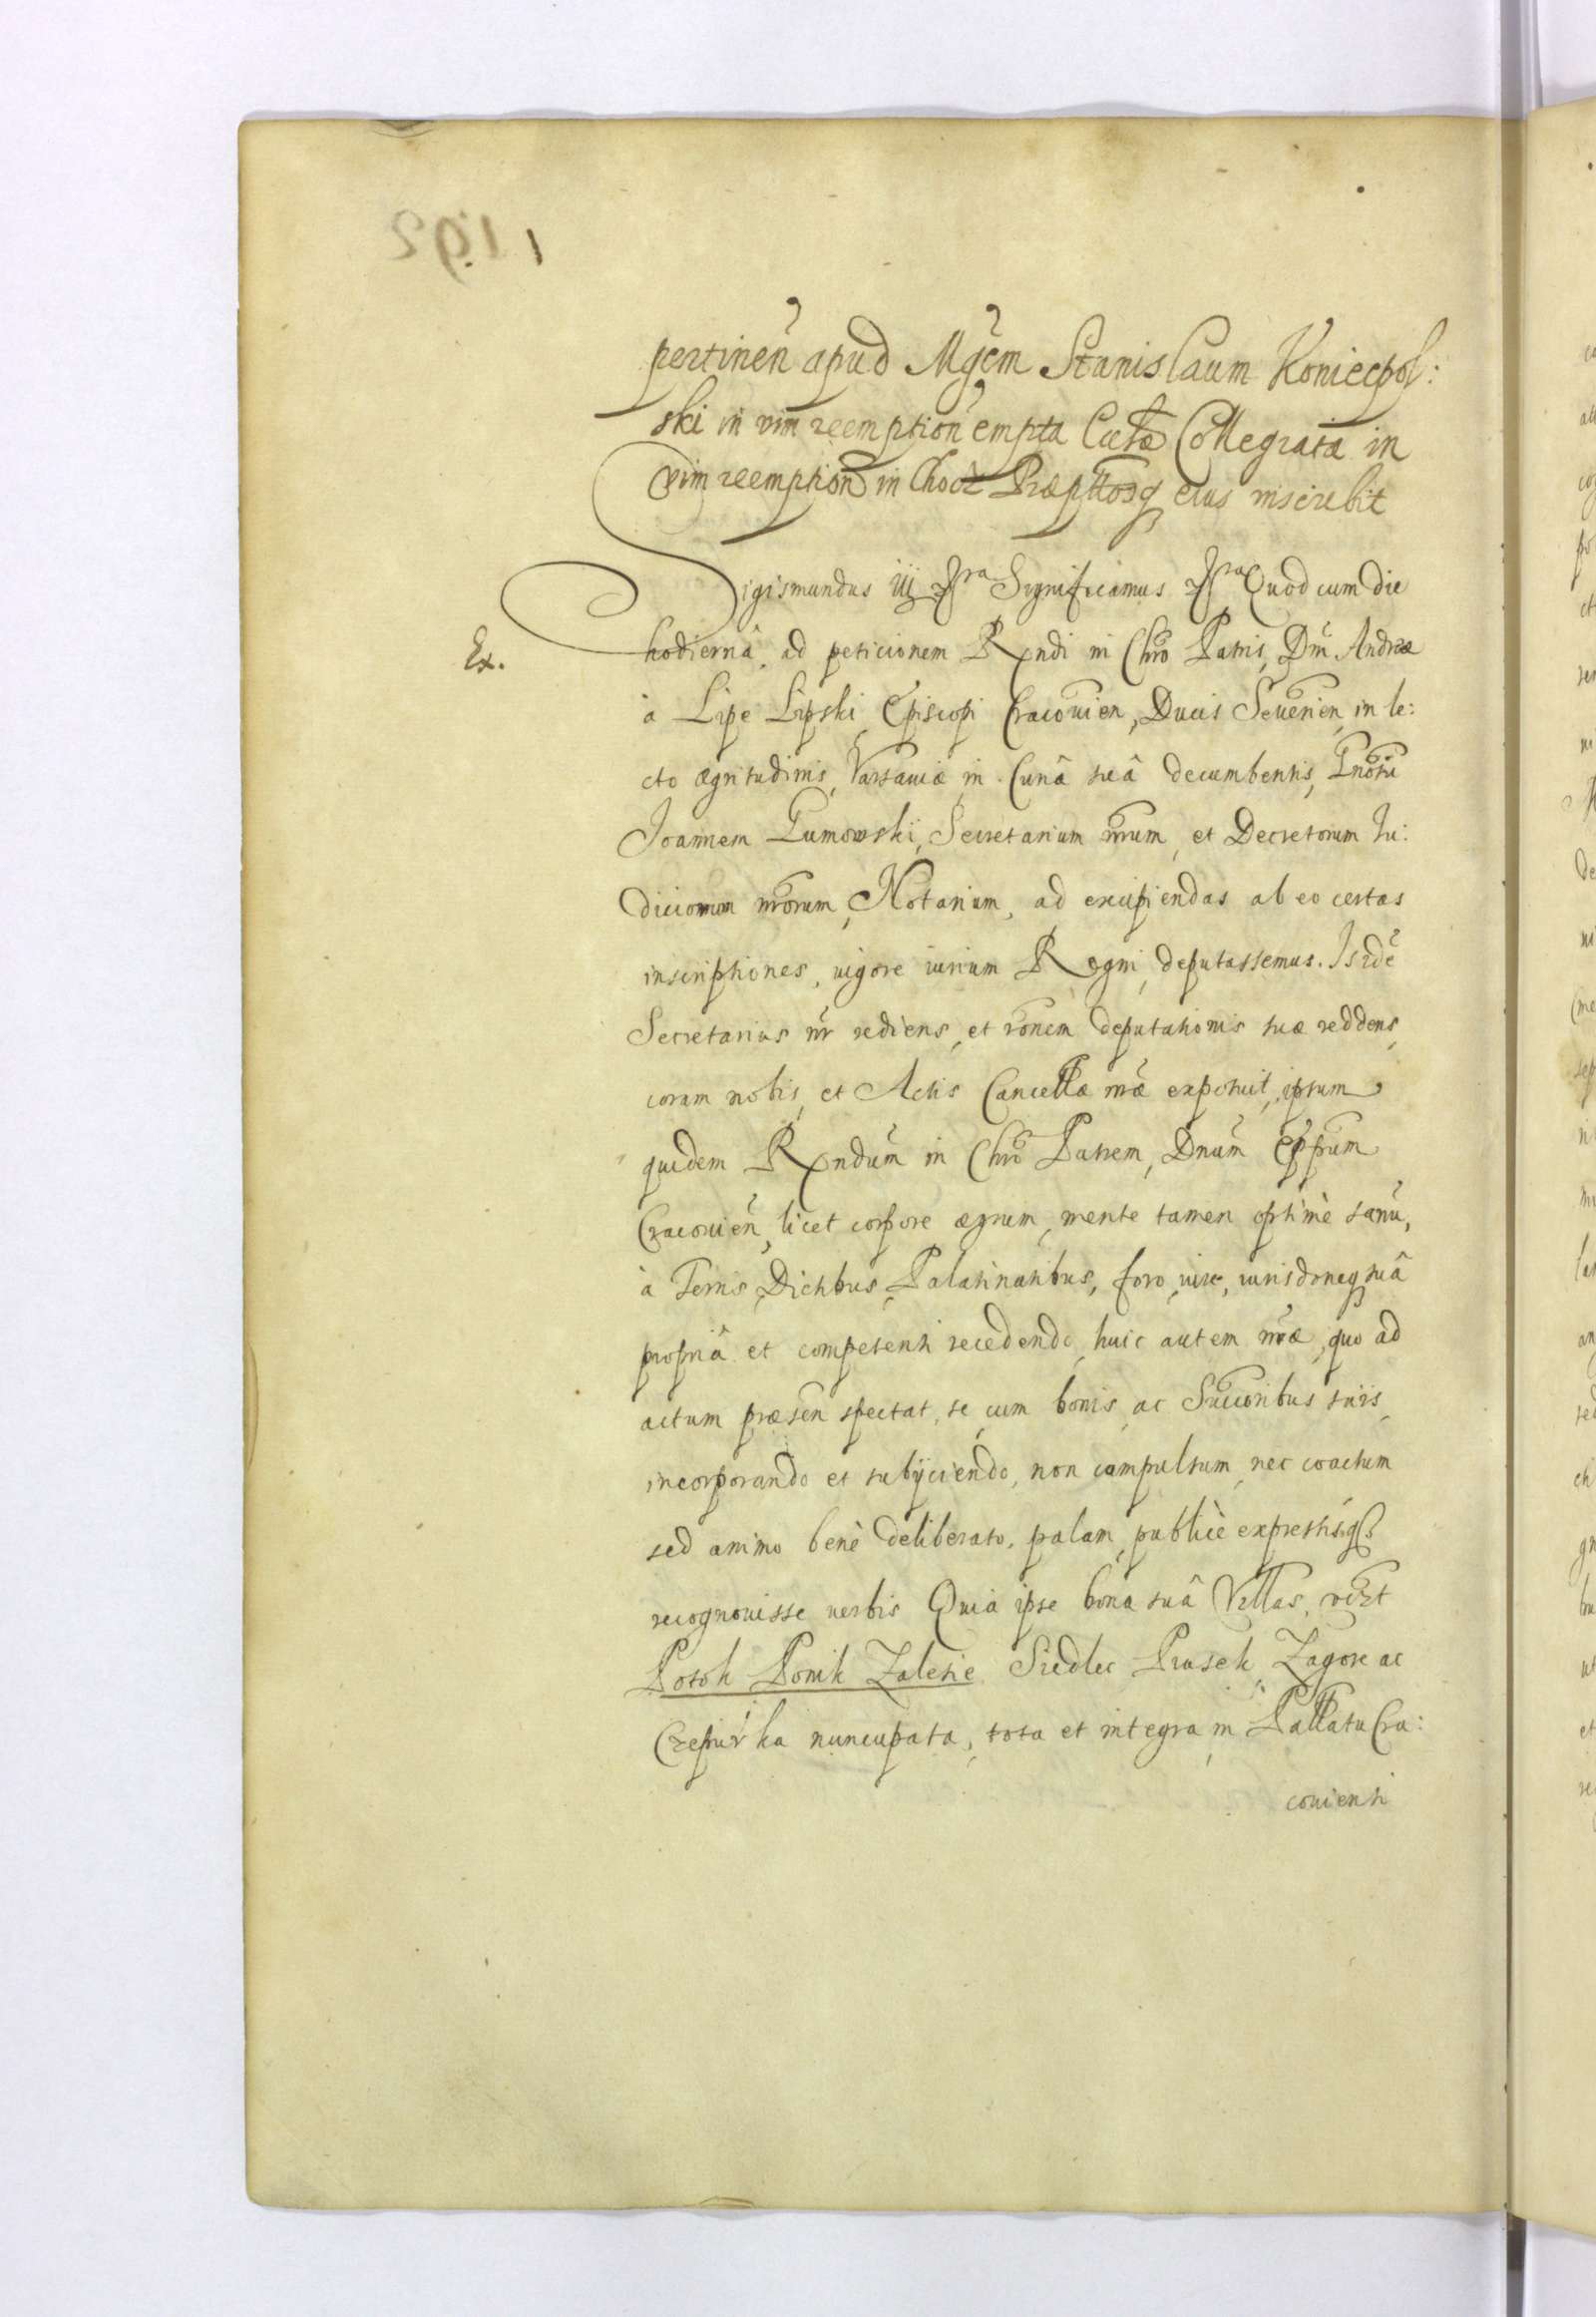 pertineñ apud Mgcm Stanislaum Koniecpol:
ski in vim reemption empta Ecclae Collegiatae in
vim reemption in Chocz Praepttosq eius inscribit
Sigismundus iij etc ra Significamus etc ra Quod cum die
Ex.
hodiernâ, ad peticionem Rxndi in Chro Patris, Dni Andreae
à Lipe Lipski, Episcopi Cracouien, Ducis Seuerien, in le:
cto aegritudinis, Varsauiae in Curiâ suâ decumbentis, Gnosu
Joannem Gumowski, Secretarium nrum, et Decretorum Iu:
diciorum nrorum, Notarium, ad excipiendas ab eo certas
inscriptiones, uigore iurium Regni, deputassemus. Is idẽ
Secretarius nr rediens, et ronem deputationis suae reddens,
coram nobis, et Actis Cancellae nrae exposuit, ipsum
quidem Rxndum in Chro Patrem, Dnum Eppum
Cracouieñ, licet corpore aegrum, mente tamen optimè sanũ,
à Terris, Dictbus, Palatinatibus, foro, iure, iurisdoneq suâ
propriâ et competenti recedendo, huic autem nrae, quo ad
actum praesen spectat, se, cum bonis, ac Succoribus suis,
incorporando et subijciendo, non compulsum, nec coactum
sed animo benè deliberato, palam, publicè expressisq
recognouisse uerbis Quia ipse bona suâ Villas, vdzt
Potok Ponik Zalesie Siedlec Prusek, Zagorze ac
Czepurka nuncupata, tota et integra, in Pallatu Cra:
couiensi